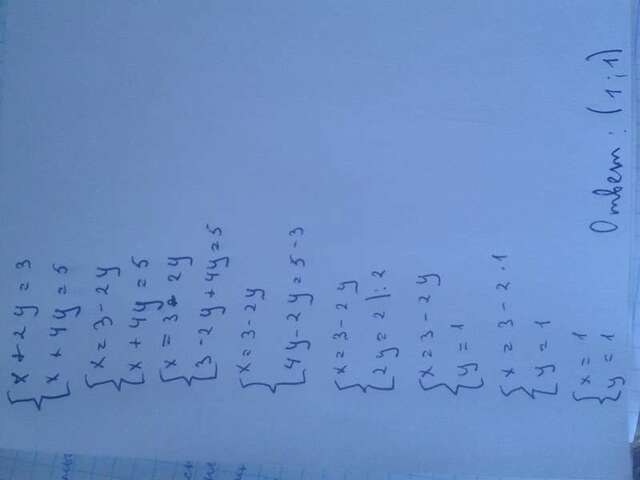 {x + 2y = 3
x + 4y = 5
{x = 3 - 2y
x + 4y = 5
{x = 3 - 2y
3 - 2y + 4y = 5
{x = 3 - 2y
4y - 2y = 5 - 3
{x = 3 - 2y
2y = 2 |: 2
{x = 3 - 2y
y = 1
{x = 3 - 2 · 1
y = 1
{x = 1
y = 1
Ответ: (1; 1)